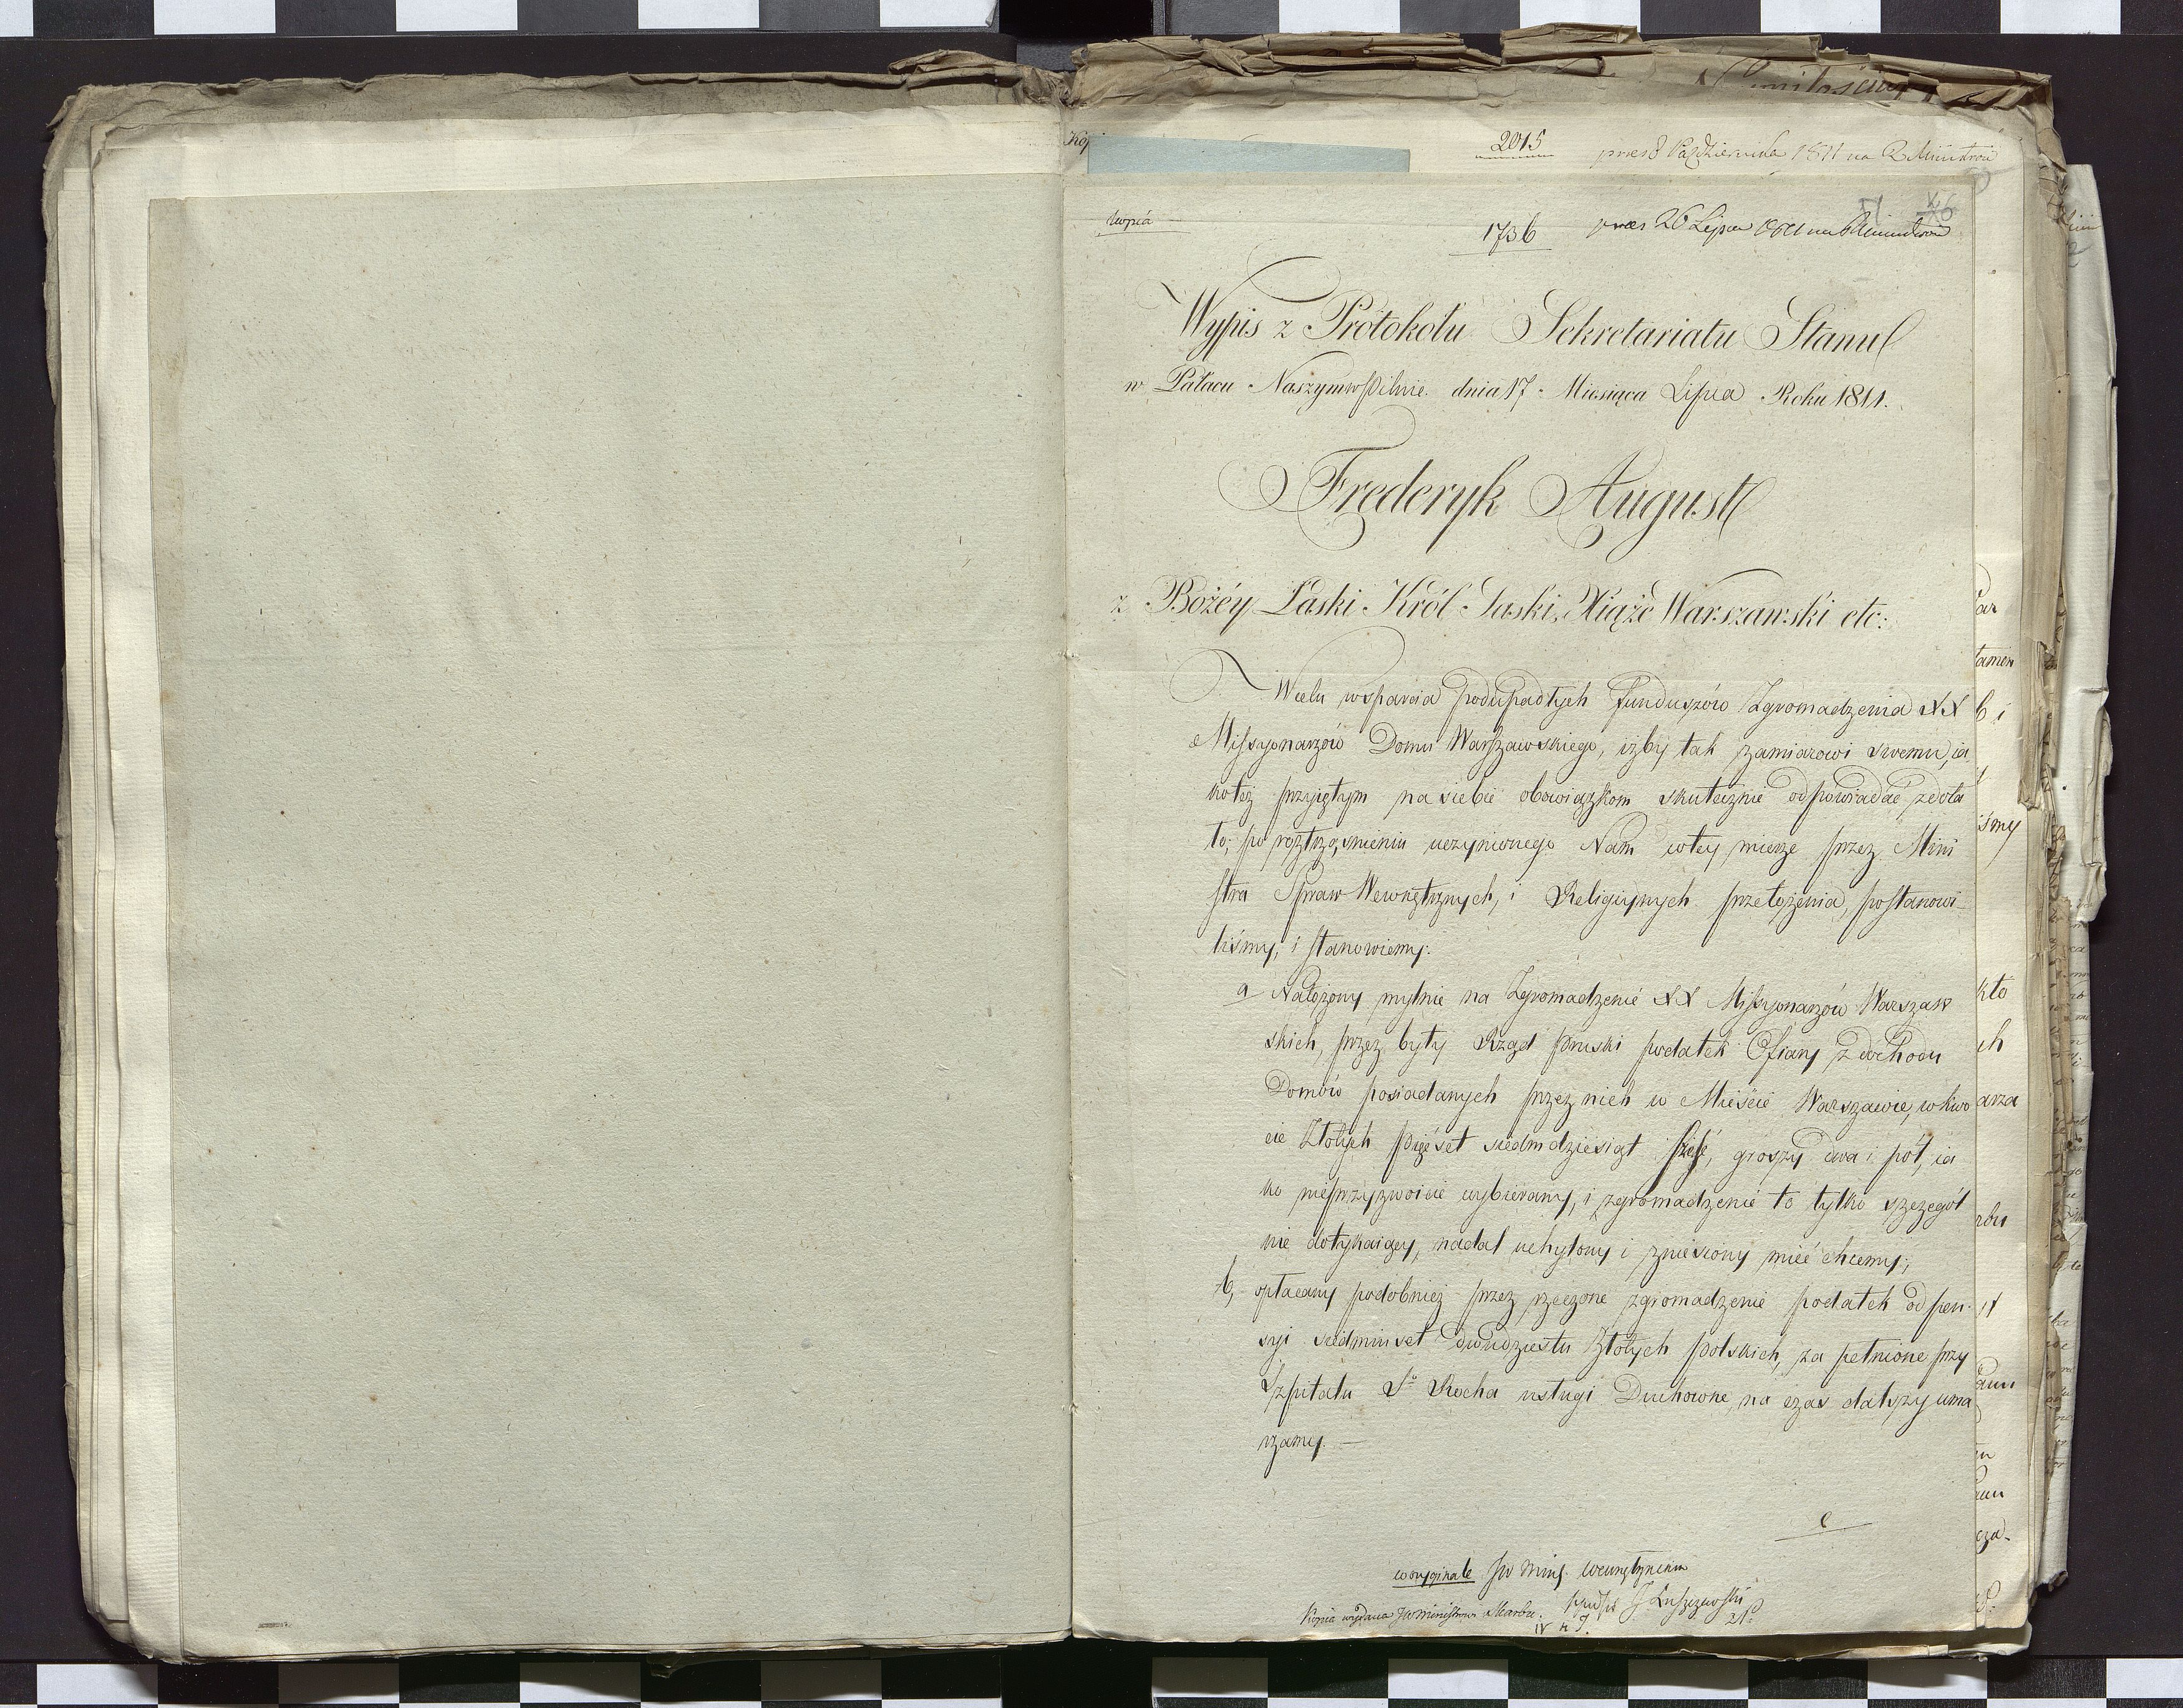 2015 pres 8 Października 1811 na R Ministrów
Kopia
1736 pres 26 Lipca 1811 na R Ministrów
Wypis z Protokołu Sekretariatu Stanu
w Pałacu Naszym w Pilnie dnia 17 Miesiąca Lipca Roku 1811.
Frederyk August
z Bożéy Łaski Król Saski, Xiąże Warszawski etc:
W celu wsparcia podupadłych funduszów Zgromadzenia XX
Missyonarzów Domu Warszawskiego, iżby tak zamiarowi swemu, ia
koteż przyiętym na siebie obowiązkom skutecznie odpowiadać zdoła
ło; po roztrząśnieniu uczynionego Nam wtey mierze przez Mini
stra Spraw Wewnętrznych, i Religiynych przełożenia, postanowi-
liśmy, i stanowiemy.
a Nałożony mylnie na Zgromadzenie XX Missyonarzów Warszaw
skich, przez były Rząd pruski podatek Ofiary z dochodu
Domów posiadanych przez nich w Mieście Warszawie, w kwo
cie Złotych pięćset siedmdziesiąt sześć, groszy dwa i pół, ia
ko nieprzyzwoicie wybierany, i zgromadzenie to tylko szczegól
nie dotykaiący, nadal uchylony i zniesiony mieć chcemy;
b, opłacany podobnież przez rzeczone zgromadzenie podatek od pen-
syi siedmiuset dwudziestu Złotych polskich, za pełnione przy
Szpitalu So Rocha usługi Duchowne, na czas dalszy uma
rzamy. —
c
w oryginale JW Minj. wewnętrznemu
Kopia wydana JW Ministrowi Skarbu. podpis J Łuszczewski